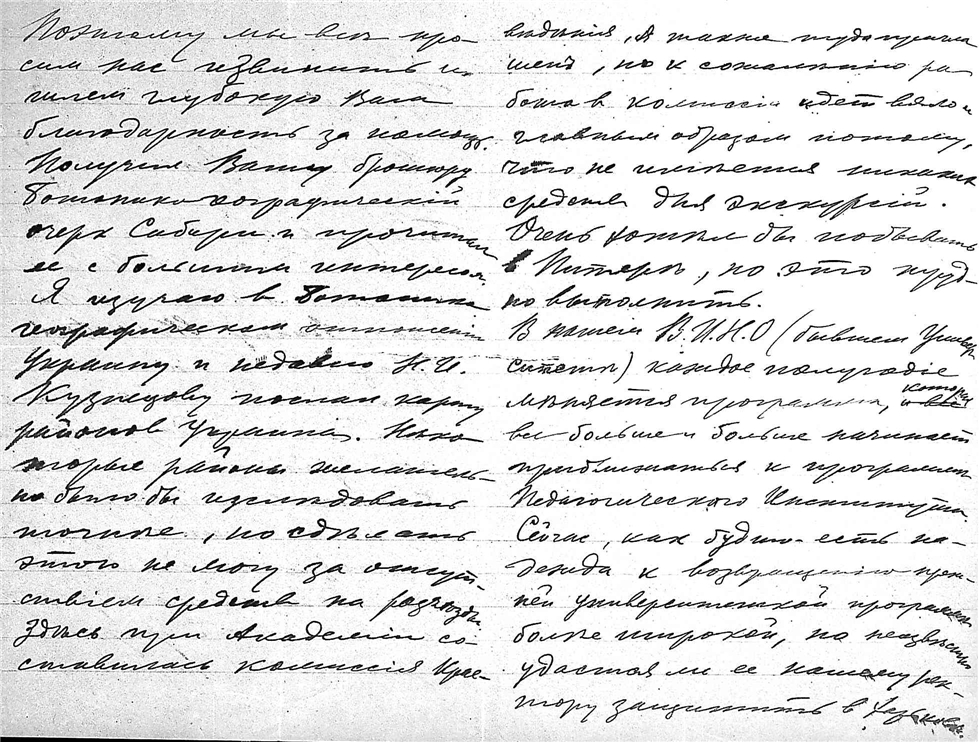 Поэтому мы все про-
сим нас извинить и
шлем глубокую Вам
благодарность за помощь.
Получил Вашу брошюру
Ботанико-географическій
очерк Сибири и прочитал
ее с большим интересом.
Я изучаю в ботанико
географическом отношеніи
Украину и недавно Н.И.
Кузнецову послал карту
районов Украины. Неко-
торые районы желатель-
но было бы изслѣдовать
точнѣе, но сдѣлать
этого не могу за отсут-
ствіем средств на разъѣзды
Здѣсь при Академіи со-
ставилась комиссия Крае-
вѣдѣнія, Я также туда пригла
шен, но к сожалению ра
бота в комиссіи идет вяло и
главным образом потому,
что не имѣется никаких
средств для экскурсій.
Очень хотѣл бы побывать
в Питерѣ, но это труд-
но выполнить.
В нашем В.И.Н.О (бывшем Универ
ситеты) каждое полугодіе
мѣняется программа, которая
все больше и больше начинает
приближаться к программѣ
Педагогического Института.
Сейчас, как будто есть на-
дежда к возвращению преж-
ней университетской программы
болѣе широкой, но неизвѣстно
удастся ли ее нашему рек-
тору защитить в Харьковѣ.